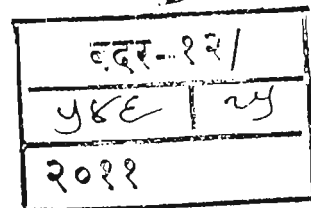 बदर-१२/
५४६ | २५
२०११